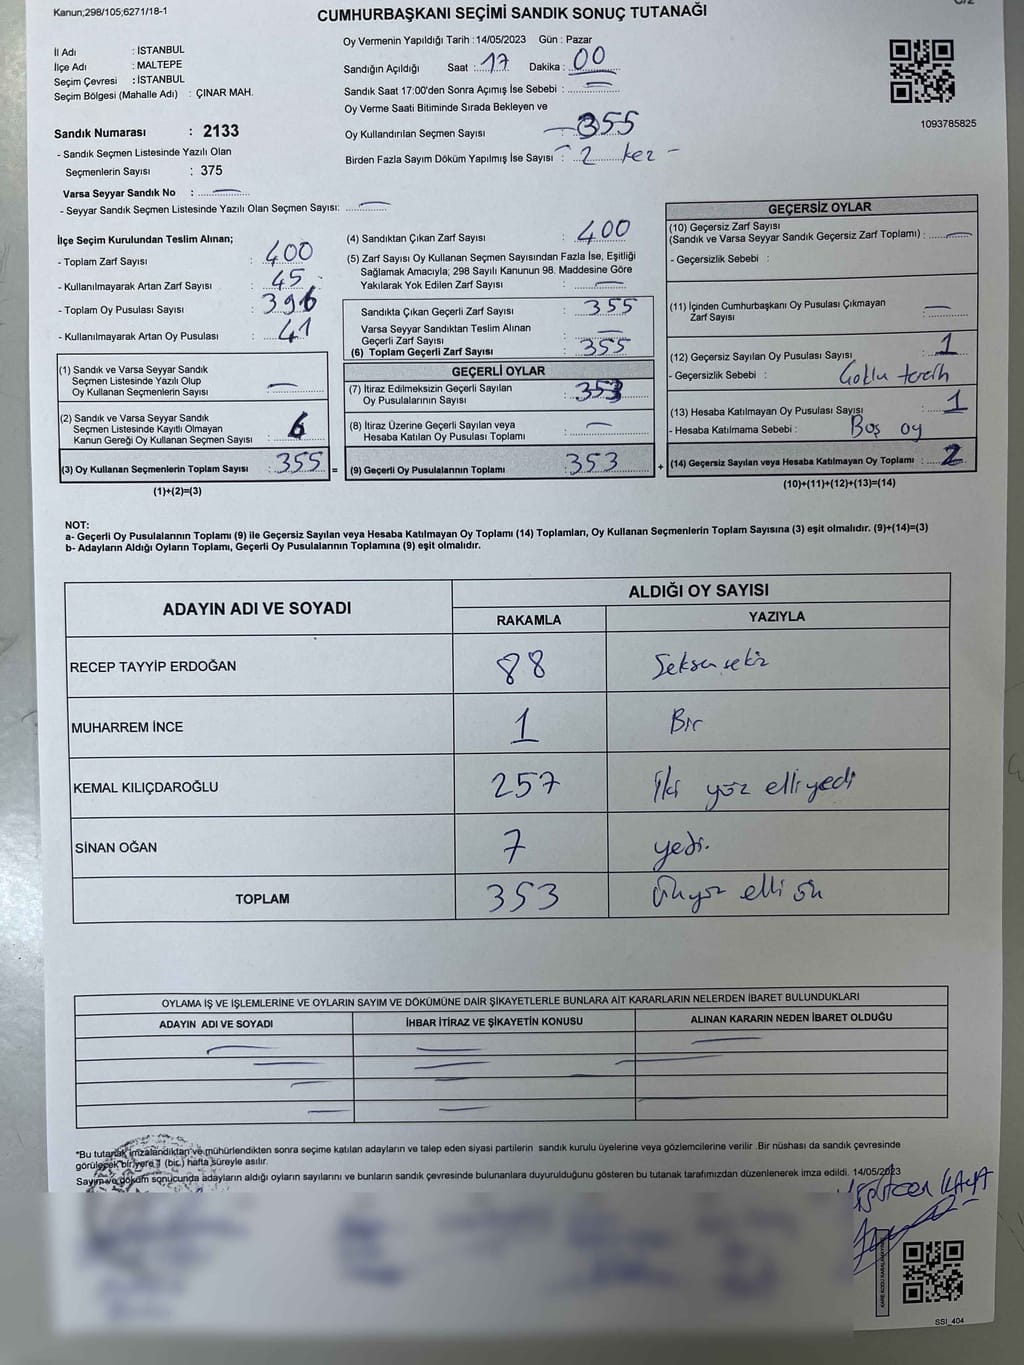 Kanun;298/105;6271/18-1
CUMHURBAŞKANI SEÇİMİ SANDIK SONUÇ TUTANAĞI
İl Adı : İSTANBUL
İlçe Adı : MALTEPE
Seçim Çevresi : İSTANBUL
Seçim Bölgesi (Mahalle Adı) : ÇINAR MAH.
Sandık Numarası : 2133
- Sandık Seçmen Listesinde Yazılı Olan
Seçmenlerin Sayısı : 375
Varsa Seyyar Sandık No :
- Seyyar Sandık Seçmen Listesinde Yazılı Olan Seçmen Sayısı:
Oy Vermenin Yapıldığı Tarih : 14/05/2023 Gün : Pazar
Sandığın Açıldığı Saat : 17 Dakika : 00
Sandık Saat 17:00'den Sonra Açımış İse Sebebi :
Oy Verme Saati Bitiminde Sırada Bekleyen ve
Oy Kullandırılan Seçmen Sayısı 355
Birden Fazla Sayım Döküm Yapılmış İse Sayısı : 2 kez -
1093785825
İlçe Seçim Kurulundan Teslim Alınan;
- Toplam Zarf Sayısı : 400
- Kullanılmayarak Artan Zarf Sayısı : 45
- Toplam Oy Pusulası Sayısı : 396
- Kullanılmayarak Artan Oy Pusulası : 41
(1) Sandık ve Varsa Seyyar Sandık
Seçmen Listesinde Yazılı Olup
Oy Kullanan Seçmenlerin Sayısı :
(2) Sandık ve Varsa Seyyar Sandık
Seçmen Listesinde Kayıtlı Olmayan
Kanun Gereği Oy Kullanan Seçmen Sayısı : 6
(3) Oy Kullanan Seçmenlerin Toplam Sayısı : 355 =
(1)+(2)=(3)
(4) Sandıktan Çıkan Zarf Sayısı : 400
(5) Zarf Sayısı Oy Kullanan Seçmen Sayısından Fazla İse, Eşitliği
Sağlamak Amacıyla; 298 Sayılı Kanunun 98. Maddesine Göre
Yakılarak Yok Edilen Zarf Sayısı :
Sandıkta Çıkan Geçerli Zarf Sayısı : 355
Varsa Seyyar Sandıktan Teslim Alınan
Geçerli Zarf Sayısı :
(6) Toplam Geçerli Zarf Sayısı : 355
GEÇERLİ OYLAR
(7) İtiraz Edilmeksizin Geçerli Sayılan
Oy Pusulalarının Sayısı : 353
(8) İtiraz Üzerine Geçerli Sayılan veya
Hesaba Katılan Oy Pusulası Toplamı :
(9) Geçerli Oy Pusulalarının Toplamı : 353 +
GEÇERSİZ OYLAR
(10) Geçersiz Zarf Sayısı
(Sandık ve Varsa Seyyar Sandık Geçersiz Zarf Toplamı) :
- Geçersizlik Sebebi :
(11) İçinden Cumhurbaşkanı Oy Pusulası Çıkmayan
Zarf Sayısı :
(12) Geçersiz Sayılan Oy Pusulası Sayısı : 1
- Geçersizlik Sebebi : Çoklu tercih
(13) Hesaba Katılmayan Oy Pusulası Sayısı : 1
- Hesaba Katılmama Sebebi : Boş oy
(14) Geçersiz Sayılan veya Hesaba Katılmayan Oy Toplamı : 2
(10)+(11)+(12)+(13)=(14)
NOT:
a- Geçerli Oy Pusulalarının Toplamı (9) ile Geçersiz Sayılan veya Hesaba Katılmayan Oy Toplamı (14) Toplamları, Oy Kullanan Seçmenlerin Toplam Sayısına (3) eşit olmalıdır. (9)+(14)=(3)
b- Adayların Aldığı Oyların Toplamı, Geçerli Oy Pusulalarının Toplamına (9) eşit olmalıdır.
ADAYIN ADI VE SOYADI
ALDIĞI OY SAYISI
RAKAMLA YAZIYLA
RECEP TAYYİP ERDOĞAN 88 Seksen sekiz
MUHARREM İNCE 1 Bir
KEMAL KILIÇDAROĞLU 257 İki yüz elli yedi
SİNAN OĞAN 7 yedi.
TOPLAM 353 elli
OYLAMA İŞ VE İŞLEMLERİNE VE OYLARIN SAYIM VE DÖKÜMÜNE DAİR ŞİKAYETLERLE BUNLARA AİT KARARLARIN NELERDEN İBARET BULUNDUKLARI
ADAYIN ADI VE SOYADI İHBAR İTİRAZ VE ŞİKAYETİN KONUSU ALINAN KARARIN NEDEN İBARET OLDUĞU
*Bu tutanak imzalandıktan ve mühürlendikten sonra seçime katılan adayların ve talep eden siyasi partilerin sandık kurulu üyelerine veya gözlemcilerine verilir. Bir nüshası da sandık çevresinde
görülecek bir yere 1 (bir) hafta süreyle asılır.
Sayım ve döküm sonucunda adayların aldığı oyların sayılarını ve bunların sandık çevresinde bulunanlara duyurulduğunu gösteren bu tutanak tarafımızdan düzenlenerek imza edildi. 14/05/2023
KAYA
SSI_404